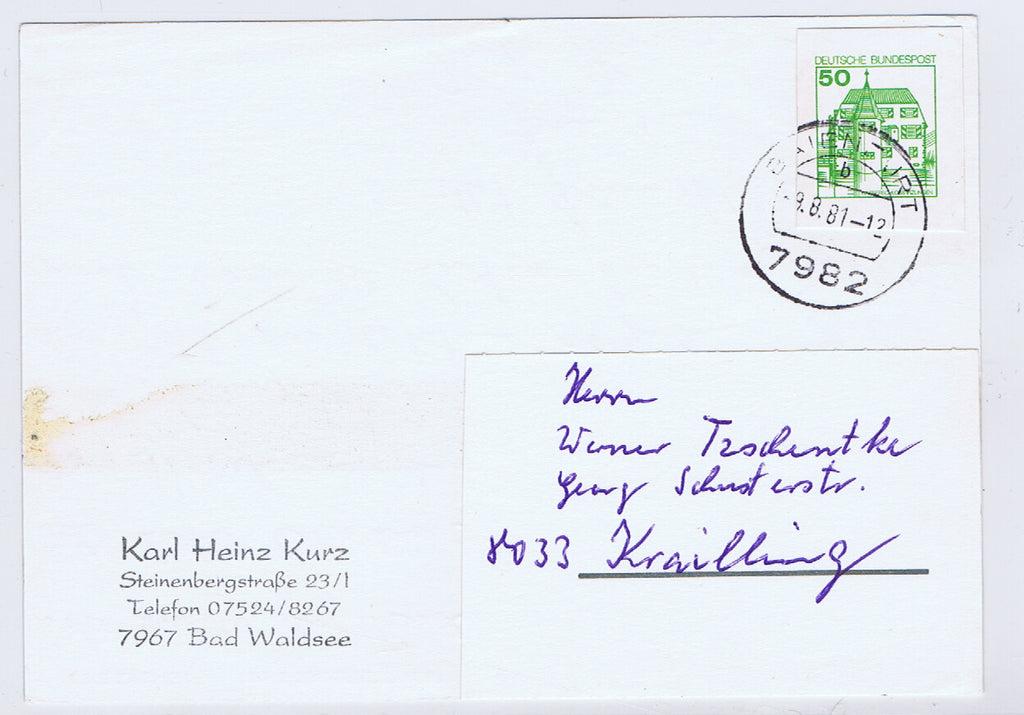 DEUTSCHE BUNDESPOST
50
b
-9.8.81-12
7982
Herrn
Werner Tzschentke
Georg Schusterstr.
8033 Krailling
Karl Heinz Kurz
Steinenbergstraße 23/1
Telefon 07524/8267
7967 Bad Waldsee